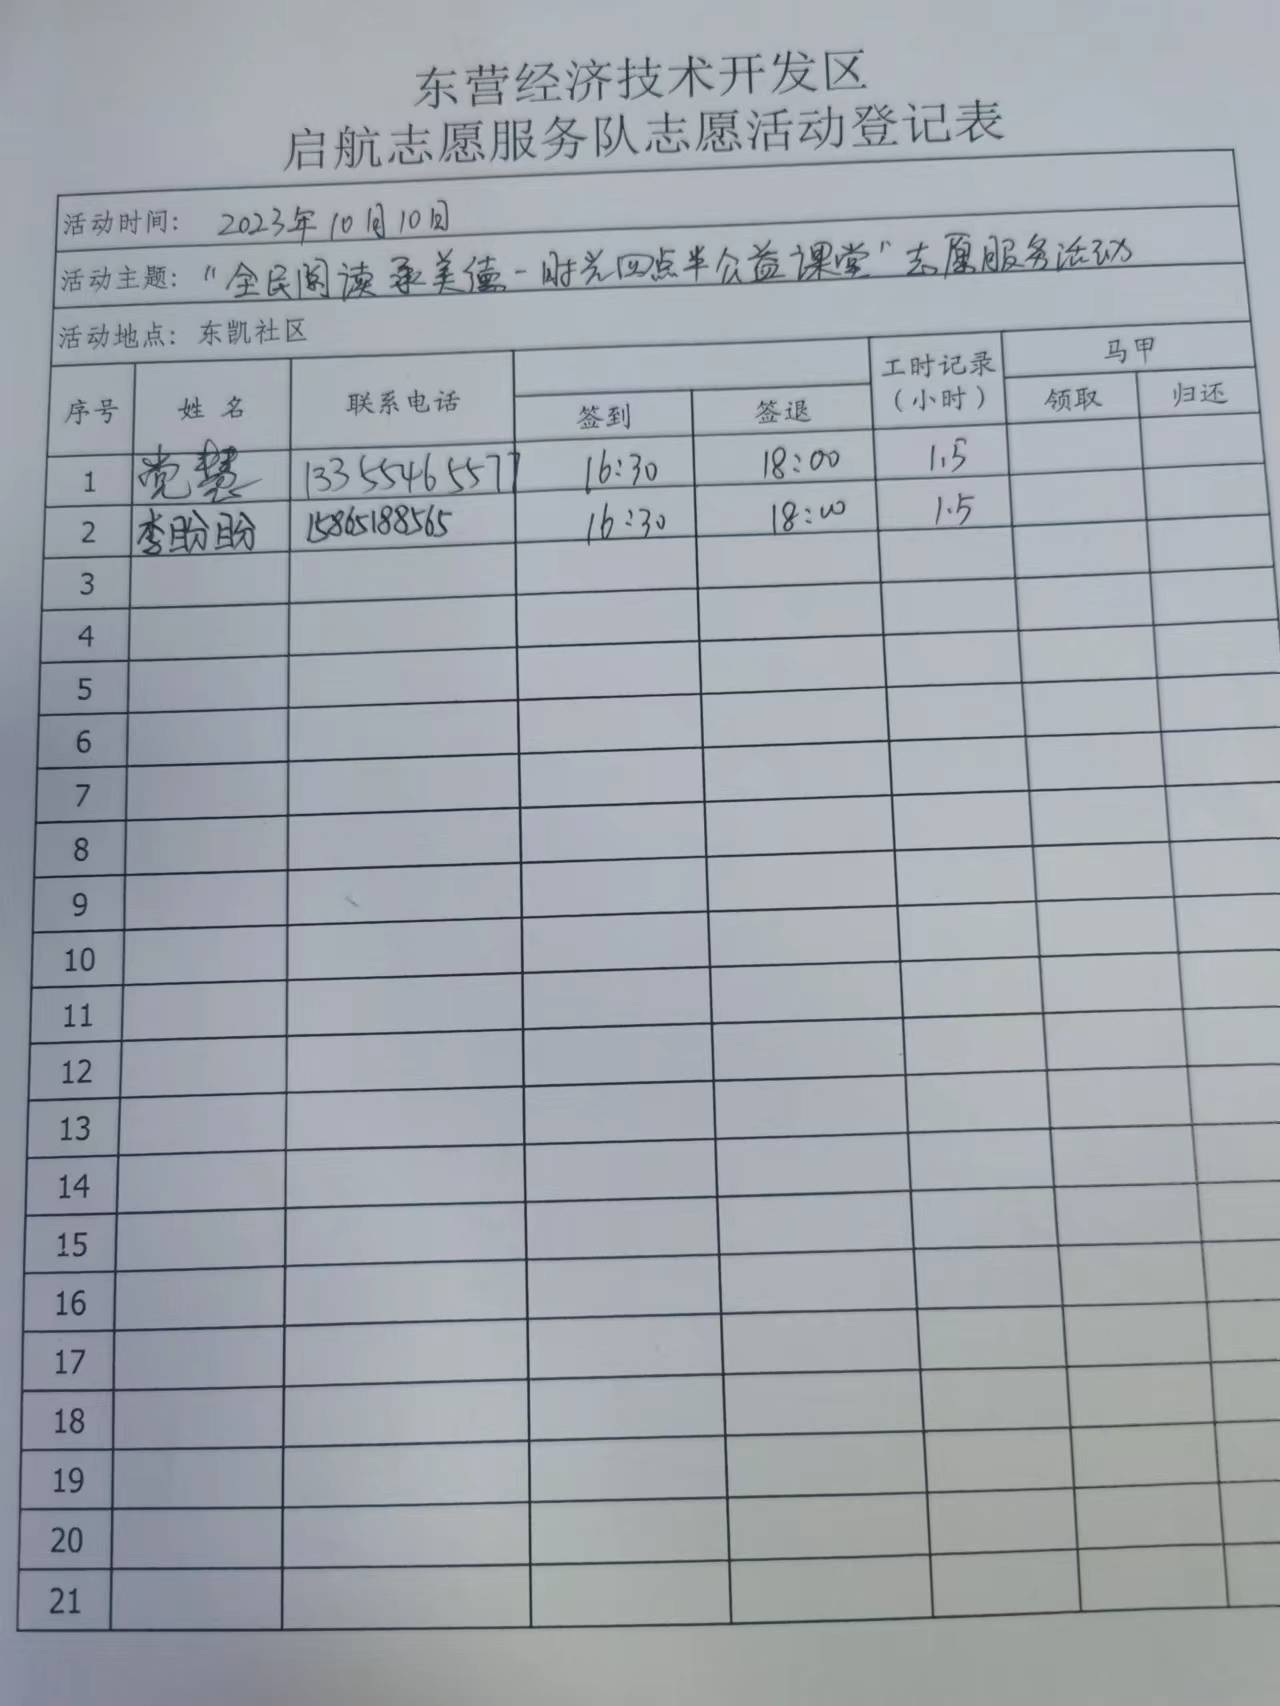 东营经济技术开发区
启航志愿服务队志愿活动登记表
活动时间： 2023年10月10日
活动主题：“全民阅读 承美德－时光四点半公益课堂”志愿服务活动
活动地点：东凯社区
序号 姓名 联系电话 签到 签退 工时记录（小时） 马甲 领取 归还
1 党慧 13355465577 16:30 18:00 1.5
2 李盼盼 15865188565 16:30 18:00 1.5
3
4
5
6
7
8
9
10
11
12
13
14
15
16
17
18
19
20
21